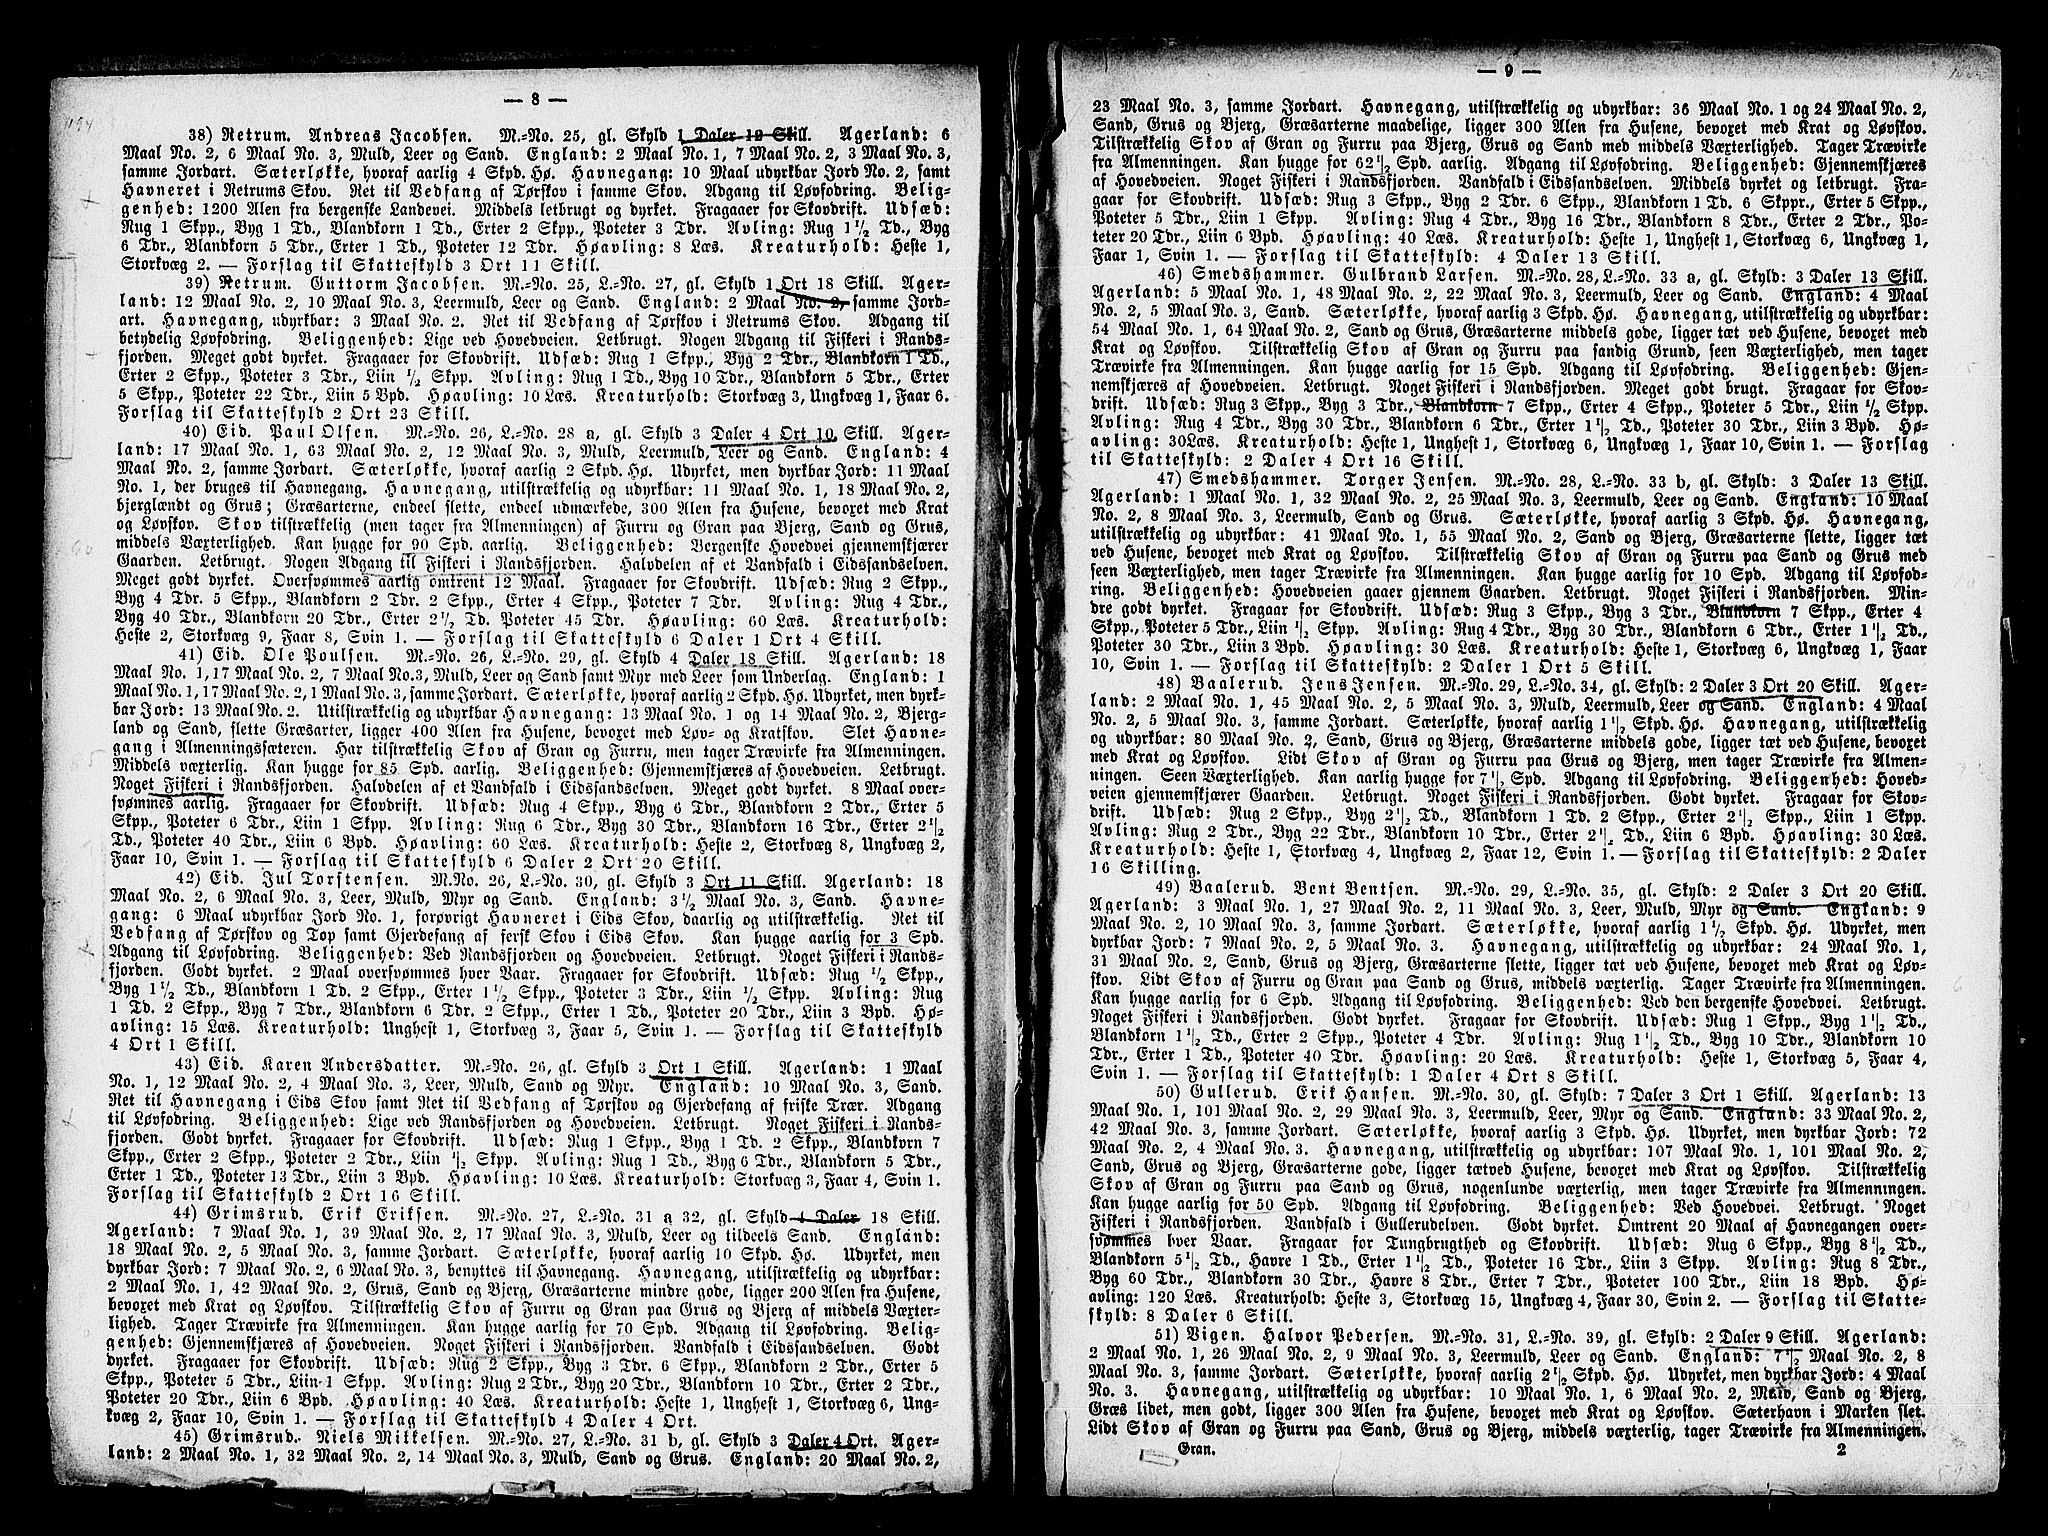 — 8 —
38) Retrum. Andreas Jacobsen. M.=No. 25, gl. Skyld 1 Daler 12 Skill. Agerland: 6
Maal No. 2, 6 Maal No. 3, Muld, Leer og Sand. England: 2 Maal No. 1, 7 Maal No. 2, 3 Maal No. 3,
samme Jordart. Sæterløkke, hvoraf aarlig 4 Skpd. Hø. Havnegang: 10 Maal udyrkbar Jord No. 2, samt
Havneret i Retrums Skov. Ret til Vedfang af Tørskov i samme Skov. Adgang til Løvfodring. Belig=
genhed: 1200 Alen fra bergenske Landevei. Middels letbrugt og dyrket. Fragaaer for Skovdrift. Udsæd:
Rug 1 Skpp., Byg 1 Td., Blandkorn 1 Td., Erter 2 Skpp., Poteter 3 Tdr. Avling: Rug 1½ Td., Byg
6 Tdr., Blandkorn 5 Tdr., Erter 1 Td., Poteter 12 Tdr. Høavling: 8 Læs. Kreaturhold: Heste 1,
Storkvæg 2. — Forslag til Skatteskyld 3 Ort 11 Skill.
39) Retrum. Guttorm Jacobsen. M.=No. 25, L.=No. 27, gl. Skyld 1 Ort 18 Skill. Ager=
land: 12 Maal No. 2, 10 Maal No. 3, Leermuld, Leer og Sand. England: 2 Maal No. 2, samme Jord=
art. Havnegang, udyrkbar: 3 Maal No. 2. Ret til Vedfang af Tørskov i Retrums Skov. Adgang til
betydelig Løvfodring. Beliggenhed: Lige ved Hovedveien. Letbrugt. Nogen Adgang til Fiskeri i Rands=
fjorden. Meget godt dyrket. Fragaaer for Skovdrift. Udsæd: Rug 1 Skpp., Byg 2 Tdr., Blandkorn 1 Td.,
Erter 2 Skpp., Poteter 3 Tdr., Liin ½ Skpp. Avling: Rug 1 Td., Byg 10 Tdr., Blandkorn 5 Tdr., Erter
5 Skpp., Poteter 22 Tdr., Liin 5 Bpd. Høavling: 10 Læs. Kreaturhold: Storkvæg 3, Ungkvæg 1, Faar 6.
Forslag til Skatteskyld 2 Ort 23 Skill.
40) Eid. Paul Olsen. M.=No. 26, L.=No. 28 a, gl. Skyld 3 Daler 4 Ort 10 Skill. Ager=
land: 17 Maal No. 1, 63 Maal No. 2, 12 Maal No. 3, Muld, Leermuld, Leer og Sand. England: 4
Maal No. 2, samme Jordart. Sæterløkke, hvoraf aarlig 2 Skpd. Hø. Udyrket, men dyrkbar Jord: 11 Maal
No. 1, der bruges til Havnegang. Havnegang, utilstrækkelig og udyrkbar: 11 Maal No. 1, 18 Maal No. 2,
bjerglændt og Grus; Græsarterne, endeel slette, endeel udmærkede, 300 Alen fra Husene, bevoxet med Krat
og Løvskov. Skov tilstrækkelig (men tager fra Almenningen) af Furru og Gran paa Bjerg, Sand og Grus,
middels Væxterlighed. Kan hugge for 90 Spd. aarlig. Beliggenhed: Bergenske Hovedvei gjennemskjærer
Gaarden. Letbrugt. Nogen Adgang til Fiskeri i Randsfjorden. Halvdelen af et Vandfald i Eidssandselven.
Meget godt dyrket. Oversvømmes aarlig omtrent 12 Maal. Fragaaer for Skovdrift. Udsæd: Rug 2 Skpp.,
Byg 4 Tdr. 5 Skpp., Blandkorn 2 Tdr. 2 Skpp., Erter 4 Skpp., Poteter 7 Tdr. Avling: Rug 4 Tdr.,
Byg 40 Tdr., Blandkorn 20 Tdr., Erter 2½ Td. Poteter 45 Tdr. Høavling: 60 Læs. Kreaturhold:
Heste 2, Storkvæg 9, Faar 8, Svin 1. — Forslag til Skatteskyld 6 Daler 1 Ort 4 Skill.
41) Eid. Ole Poulsen. M.=No. 26, L.=No. 29, gl. Skyld 4 Daler 18 Skill. Agerland: 18
Maal No. 1, 17 Maal No. 2, 7 Maal No. 3, Muld, Leer og Sand samt Myr med Leer som Underlag. England: 1
Maal No. 1, 17 Maal No. 2, 1 Maal No. 3, samme Jordart. Sæterløkke, hvoraf aarlig 2 Skpd. Hø. Udyrket, men dyrk=
bar Jord: 13 Maal No. 2. Utilstrækkelig og udyrkbar Havnegang: 13 Maal No. 1 og 14 Maal No. 2, Bjerg=
land og Sand, slette Græsarter, ligger 400 Alen fra Husene, bevoxet med Løv- og Kratskov. Slet Havne=
gang i Almenningsfæteren. Har tilstrækkelig Skov af Gran og Furru, men tager Trævirke fra Almenningen.
Middels væxterlig. Kan hugge for 85 Spd. aarlig. Beliggenhed: Gjennemskjæres af Hovedveien. Letbrugt.
Noget Fiskeri i Randsfjorden. Halvdelen af et Vandfald i Eidssandselven. Meget godt dyrket. 8 Maal over=
svømmes aarlig. Fragaaer for Skovdrift. Udsæd: Rug 4 Skpp., Byg 6 Tdr., Blandkorn 2 Tdr., Erter 5
Skpp., Poteter 6 Tdr., Liin 1 Skpp. Avling: Rug 6 Tdr., Byg 30 Tdr., Blandkorn 16 Tdr., Erter 2½
Td., Poteter 40 Tdr., Liin 6 Bpd. Høavling: 60 Læs. Kreaturhold: Heste 2, Storkvæg 8, Ungkvæg 2,
Faar 10, Svin 1. — Forslag til Skatteskyld 6 Daler 2 Ort 20 Skill.
42) Eid. Jul Torstensen. M.No. 26, L.=No. 30, gl. Skyld 3 Ort 11 Skill. Agerland: 18
Maal No. 2, 6 Maal No. 3, Leer, Muld, Myr og Sand. England: 3½ Maal No. 3, Sand. Havne=
gang: 6 Maal udyrkbar Jord No. 1, forøvrigt Havneret i Eids Skov, daarlig og utilstrækkelig. Ret til
Vedfang af Tørskov og Top samt Gjerdefang af fersk Skov i Eids Skov. Kan hugge aarlig for 3 Spd.
Adgang til Løvfodring. Beliggenhed: Ved Randsfjorden og Hovedveien. Letbrugt. Noget Fiskeri i Rands=
fjorden. Godt dyrket. 2 Maal oversvømmes hver Vaar. Fragaaer for Skovdrift. Udsæd: Rug ½ Skpp.,
Byg 1½ Td., Blandkorn 1 Td. 2 Skpp., Erter 1½ Skpp., Poteter 3 Tdr., Liin ½ Skpp. Avling: Rug
1 Td. 2 Skpp., Byg 7 Tdr., Blandkorn 6 Tdr. 2 Skpp., Erter 1 Td., Poteter 20 Tdr., Liin 3 Bpd. Hø=
avling: 15 Læs. Kreaturhold: Unghest 1, Storkvæg 3, Faar 5, Svin 1. — Forslag til Skatteskyld
4 Ort 1 Skill.
43) Eid. Karen Andersdatter. M.=No. 26, gl. Skyld 3 Ort 1 Skill. Agerland: 1 Maal
No. 1, 12 Maal No. 2, 4 Maal No. 3, Leer, Muld, Sand og Myr. England: 10 Maal No. 3, Sand.
Ret til Havnegang i Eids Skov samt Ret til Vedfang af Tørskov og Gjerdefang af friske Trær. Adgang
til Løvfodring. Beliggenhed: Lige ved Randsfjorden og Hovedveien. Letbrugt. Noget Fiskeri i Rands=
fjorden. Godt dyrket. Fragaaer for Skovdrift. Udsæd: Rug 1 Skpp., Byg 1 Td. 2 Skpp., Blandkorn 7
Skpp., Erter 2 Skpp., Poteter 2 Tdr., Liin ½ Skpp. Avling: Rug 1 Td., Byg 6 Tdr., Blandkorn 5 Tdr.,
Erter 1 Td., Poteter 13 Tdr., Liin 3 Bpd. Høavling: 10 Læs. Kreaturhold: Storkvæg 3, Faar 4, Svin 1.
Forslag til Skatteskyld 2 Ort 16 Skill.
44) Grimsrud. Erik Eriksen. M.=No. 27, L.=No. 31 a 32, gl. Skyld 4 Daler 18 Skill.
Agerland: 7 Maal No. 1, 39 Maal No. 2, 17 Maal No. 3, Muld, Leer og tildeels Sand. England:
18 Maal No. 2, 5 Maal No. 3, samme Jordart. Sæterløkke, hvoraf aarlig 10 Skpd. Hø. Udyrket, men
dyrkbar Jord: 7 Maal No. 2, 6 Maal No. 3, benyttes til Havnegang. Havnegang, utilstrækkelig og udyrkbar:
2 Maal No. 1, 42 Maal No. 2, Grus, Sand og Bjerg, Græsarterne mindre gode, ligger 200 Alen fra Husene,
bevoxet med Krat og Løvskov. Tilstrækkelig Skov af Furru og Gran paa Grus og Bjerg af middels Væxter=
lighed. Tager Trævirke fra Almenningen. Kan hugge aarlig for 70 Spd. Adgang til Løvfodring. Belig=
genhed: Gjennemskjæres af Hovedveien. Noget Fiskeri i Randsfjorden. Vandfald i Eidssandselven. Godt
dyrket. Fragaaer for Skovdrift. Udsæd: Rug 2 Skpp., Byg 3 Tdr. 6 Skpp., Blandkorn 2 Tdr., Erter 5
Skpp., Poteter 5 Tdr., Liin 1 Skpp. Avling: Rug 2 Tdr., Byg 20 Tdr., Blandkorn 10 Tdr., Erter 2 Tdr.,
Poteter 20 Tdr., Liin 6 Bpd. Høavling: 40 Læs. Kreaturhold: Heste 1, Unghest 1, Storkvæg 6, Ung=
kvæg 2, Faar 10, Svin 1. — Forslag til Skatteskyld 4 Daler 4 Ort.
45) Grimsrud. Niels Mikkelsen. M.=No. 27, L.=No. 31 b, gl. Skyld 3 Daler 4 Ort. Ager=
land: 2 Maal No. 1, 32 Maal No. 2, 14 Maal No. 3, Muld, Sand og Grus. England: 20 Maal No. 2,
— 9 —
23 Maal No. 3, samme Jordart. Havnegang, utilstrækkelig og udyrkbar: 36 Maal No. 1 og 24 Maal No. 2,
Sand, Grus og Bjerg, Græsarterne maadelige, ligger 300 Alen fra Husene, bevoxet med Krat og Løvskov.
Tilstrækkelig Skov af Gran og Furru paa Bjerg, Grus og Sand med middels Væxterlighed. Tager Trævirke
fra Almenningen. Kan hugge for 62½ Spd. aarlig. Adgang til Løvfodring. Beliggenhed: Gjennemskjæres
af Hovedveien. Noget Fiskeri i Randsfjorden. Vandfald i Eidssandselven. Middels dyrket og letbrugt. Fra=
gaar for Skovdrift. Udsæd: Rug 3 Skpp., Byg 2 Tdr. 6 Skpp., Blandkorn 1 Td. 6 Skppr., Erter 5 Skpp.,
Poteter 5 Tdr., Liin 1 Skpp. Avling: Rug 4 Tdr., Byg 16 Tdr., Blandkorn 8 Tdr., Erter 2 Tdr., Po=
teter 20 Tdr., Liin 6 Bpd. Høavling: 40 Læs. Kreaturhold: Heste 1, Unghest 1, Storkvæg 6, Ungkvæg 1,
Faar 1, Svin 1. — Forslag til Skatteskyld: 4 Daler 13 Skill.
46) Smedshammer. Gulbrand Larsen. M.=No. 28, L.=No. 33 a, gl. Skyld: 3 Daler 13 Skill.
Agerland: 5 Maal No. 1, 48 Maal No. 2, 22 Maal No. 3, Leermuld, Leer og Sand. England: 4 Maal
No. 2, 5 Maal No. 3, Sand. Sæterløkke, hvoraf aarlig 3 Skpd. Hø. Havnegang, utilstrækkelig og udyrkbar:
54 Maal No. 1, 64 Maal No. 2, Sand og Grus, Græsarterne middels gode, ligger tæt ved Husene, bevoxet med
Krat og Løvskov. Tilstrækkelig Skov af Gran og Furru paa sandig Grund, seen Væxterlighed, men tager
Trævirke fra Almenningen. Kan hugge aarlig for 15 Spd. Adgang til Løvfodring. Beliggenhed: Gjen=
nemskjæres af Hovedveien. Letbrugt. Noget Fiskeri i Randsfjorden. Meget godt brugt. Fragaar for Skov=
drift. Udsæd: Rug 3 Skpp., Byg 3 Tdr., Blandkorn 7 Skpp., Erter 4 Skpp., Poteter 5 Tdr., Liin ½ Skpp.
Avling: Rug 4 Tdr., Byg 30 Tdr., Blandkorn 6 Tdr., Erter 1½ Td., Poteter 30 Tdr., Liin 3 Bpd. Hø=
avling: 30 Læs. Kreaturhold: Heste 1, Unghest 1, Storkvæg 6, Ungkvæg 1, Faar 10, Svin 1. — Forslag
til Skatteskyld: 2 Daler 4 Ort 16 Skill.
47) Smedshammer. Torger Jensen. M.=No. 28, L.=No. 33 b, gl. Skyld: 3 Daler 13 Skill.
Agerland: 1 Maal No. 1, 32 Maal No. 2, 25 Maal No. 3, Leermuld, Leer og Sand. England: 10 Maal
No. 2, 8 Maal No. 3, Leermuld, Sand og Grus. Sæterløkke, hvoraf aarlig 3 Skpd. Hø. Havnegang,
utilstrækkelig og udyrkbar: 41 Maal No. 1, 55 Maal No. 2, Sand og Bjerg, Græsarterne slette, ligger tæt
ved Husene, bevoxet med Krat og Løvskov. Tilstrækkelig Skov af Gran og Furru paa Sand og Grus med
seen Væxterlighed, men tager Trævirke fra Almenningen. Kan hugge aarlig for 10 Spd. Adgang til Løvfod=
ring. Beliggenhed: Hovedveien gaaer gjennem Gaarden. Letbrugt. Noget Fiskeri i Randsfjorden. Min=
dre godt dyrket. Fragaaer for Skovdrift. Udsæd: Rug 3 Skpp., Byg 3 Tdr., Blandkorn 7 Skpp., Erter 4
Skpp., Poteter 5 Tdr., Liin ½ Skpp. Avling: Rug 4 Tdr., Byg 30 Tdr., Blandkorn 6 Tdr., Erter 1½ Td.,
Poteter 30 Tdr., Liin 3 Bpd. Høavling: 30 Læs. Kreaturhold: Heste 1, Storkvæg 6, Ungkvæg 1, Faar
10, Svin 1. — Forslag til Skatteskyld: 2 Daler 1 Ort 5 Skill.
48) Baalerud. Jens Jensen. M.=No. 29, L.=No. 34, gl. Skyld: 2 Daler 3 Ort 20 Skill. Ager=
land: 2 Maal No. 1, 45 Maal No. 2, 5 Maal No. 3, Muld, Leermuld, Leer og Sand. England: 4 Maal
No. 2, 5 Maal No. 3, samme Jordart. Sæterløkke, hvoraf aarlig 1½ Skpd. Hø. Havnegang, utilstrækkelig
og udyrkbar: 80 Maal No. 2, Sand, Grus og Bjerg, Græsarterne middels gode, ligger tæt ved Husene, bevoxet
med Krat og Løvskov. Lidt Skov af Gran og Furru paa Grus og Bjerg, men tager Trævirke fra Almen=
ningen. Seen Væxterlighed. Kan aarlig hugge for 7½ Spd. Adgang til Løvfodring. Beliggenhed: Hoved=
veien gjennemskjærer Gaarden. Letbrugt. Noget Fiskeri i Randsfjorden. Godt dyrket. Fragaar for Skov=
drift. Udsæd: Rug 2 Skpp., Byg 2½ Td., Blandkorn 1 Td. 2 Skpp., Erter 2½ Skpp., Liin 1 Skpp.
Avling: Rug 2 Tdr., Byg 22 Tdr., Blandkorn 10 Tdr., Erter 2½ Td., Liin 6 Bpd. Høavling: 30 Læs.
Kreaturhold: Heste 1, Storkvæg 4, Ungkvæg 2, Faar 12, Svin 1. — Forslag til Skatteskyld: 2 Daler
16 Skilling.
49) Baalerud. Bent Bentsen. M.=No. 29, L.=No. 35, gl. Skyld: 2 Daler 3 Ort 20 Skill.
Agerland: 3 Maal No. 1, 27 Maal No. 2, 11 Maal No. 3, Leer, Muld, Myr og Sand. England: 9
Maal No. 2, 10 Maal No. 3, samme Jordart. Sæterløkke, hvoraf aarlig 1½ Skpd. Hø. Udyrket, men
dyrkbar Jord: 7 Maal No. 2, 5 Maal No. 3. Havnegang, utilstrækkelig og udyrkbar: 24 Maal No. 1,
31 Maal No. 2, Sand, Grus og Bjerg, Græsarterne slette, ligger tæt ved Husene, bevoxet med Krat og Løv=
skov. Lidt Skov af Furru og Gran paa Sand og Grus, middels væxterlig. Tager Trævirke fra Almenningen.
Kan hugge aarlig for 6 Spd. Adgang til Løvfodring. Beliggenhed: Ved den bergenske Hovedvei. Letbrugt.
Noget Fiskeri i Randsfjorden. Godt dyrket. Fragaar for Skovdrift. Udsæd: Rug 1 Skpp., Byg 1½ Td.,
Blandkorn 1½ Td., Erter 2 Skpp., Poteter 4 Tdr. Avling: Rug 1½ Td., Byg 10 Tdr., Blandkorn 10
Tdr., Erter 1 Tdr., Poteter 40 Tdr. Høavling: 20 Læs. Kreaturhold: Heste 1, Storkvæg 5, Faar 4,
Svin 1. — Forslag til Skatteskyld: 1 Daler 4 Ort 8 Skill.
50) Gullerud. Erik Hansen. M.=No. 30, gl. Skyld: 7 Daler 3 Ort 1 Skill. Agerland: 13
Maal No. 1, 101 Maal No. 2, 29 Maal No. 3, Leermuld, Leer, Myr og Sand. England: 33 Maal No. 2,
42 Maal No. 3, samme Jordart. Sæterløkke, hvoraf aarlig 3 Skpd. Hø. Udyrket, men dyrkbar Jord: 72
Maal No. 2, 4 Maal No. 3. Havnegang, utilstrækkelig og udyrkbar: 107 Maal No. 1, 101 Maal No. 2,
Sand, Grus og Bjerg, Græsarterne gode, ligger tætved Husene, bevoxet med Krat og Løvskov. Tilstrækkelig
Skov af Gran og Furru paa Sand og Grus, nogenlunde væxterlig, men tager Trævirke fra Almenningen.
Kan hugge aarlig for 50 Spd. Adgang til Løvfodring. Beliggenhed: Ved Hovedvei. Letbrugt. Noget
Fiskeri i Randsfjorden. Vandfald i Gullerudelven. Godt dyrket. Omtrent 20 Maal af Havnegangen over=
svømmes hver Vaar. Fragaar for Tungbrugthed og Skovdrift. Udsæd: Rug 6 Skpp., Byg 8½ Td.,
Blandkorn 5½ Td., Havre 1 Td., Erter 1½ Td., Poteter 16 Tdr., Liin 3 Skpp. Avling: Rug 8 Tdr.,
Byg 60 Tdr., Blandkorn 30 Tdr., Havre 8 Tdr., Erter 7 Tdr., Poteter 100 Tdr., Liin 18 Bpd. Hø=
avling: 120 Læs. Kreaturhold: Heste 3, Storkvæg 15, Ungkvæg 4, Faar 30, Svin 2. — Forslag til Skatte=
skyld: 8 Daler 6 Skill.
51) Vigen. Halvor Pedersen. M.=No. 31, L.=No. 39, gl. Skyld: 2 Daler 9 Skill. Agerland:
2 Maal No. 1, 26 Maal No. 2, 9 Maal No. 3, Leermuld, Leer og Sand. England: 7½ Maal No. 2, 8
Maal No. 3, samme Jordart. Sæterløkke, hvoraf aarlig 2½ Skpd. Hø. Udyrket, men dyrkbar Jord: 4 Maal
No. 3. Havnegang, utilstrækkelig og udyrkbar: 10 Maal No. 1, 6 Maal No. 2, Muld, Sand og Bjerg,
Græs lidet, men godt, ligger 300 Alen fra Husene, bevoxet med Krat og Løvskov. Sæterhavn i Marken slet.
Lidt Skov af Gran og Furru paa Sand, Grus og Bjerg, middels væxterlig, tager Trævirke fra Almenningen.
Gran. 2